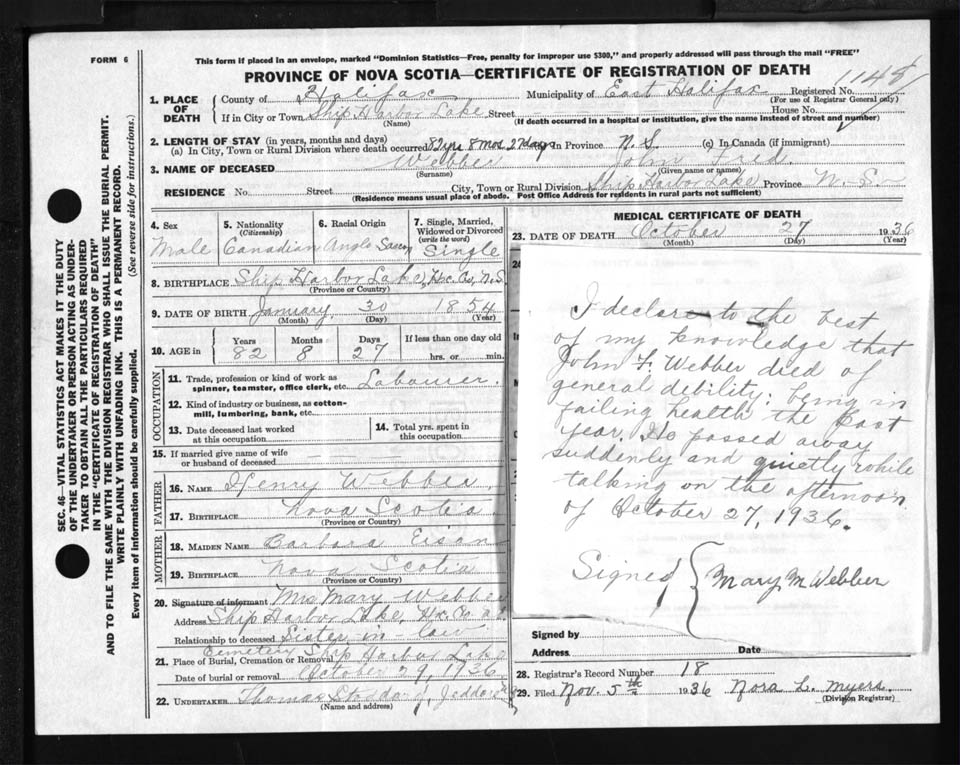 FORM 6
This form if placed in an envelope, marked "Dominion Statistics—Free, penalty for improper use $300," and properly addressed will pass through the mail "FREE"
PROVINCE OF NOVA SCOTIA—CERTIFICATE OF REGISTRATION OF DEATH
1148
1. PLACE OF DEATH
County of Halifax Municipality of East Halifax Registered No.
(For use of Registrar General only)
If in City or Town Ship Harbor Lake Street House No.
(Name) (If death occurred in a hospital or institution, give the name instead of street and number)
2. LENGTH OF STAY (in years, months and days)
(a) In City, Town or Rural Division where death occurred 82 yrs 8 mos 27 days In Province N. S. (c) In Canada (if immigrant)
3. NAME OF DECEASED Webber John Fred
(Surname) (Given name or names)
RESIDENCE No. Street City, Town or Rural Division Ship Harbor Lake Province N. S.
(Residence means usual place of abode. Post Office Address for residents in rural parts not sufficient)
4. Sex
Male
5. Nationality
(Citizenship)
Canadian
6. Racial Origin
Anglo Saxon
7. Single, Married, Widowed or Divorced
(write the word)
Single
8. BIRTHPLACE Ship Harbor Lake, Hx. Co, N.S
(Province or Country)
9. DATE OF BIRTH January 30 1854
(Month) (Day) (Year)
10. AGE in
Years Months Days If less than one day old
82 8 27 hrs. or min.
OCCUPATION
11. Trade, profession or kind of work as spinner, teamster, office clerk, etc. Labourer.
12. Kind of industry or business, as cotton-mill, lumbering, bank, etc.
13. Date deceased last worked at this occupation
14. Total yrs. spent in this occupation
15. If married give name of wife or husband of deceased
FATHER
16. NAME Henry Webber
17. BIRTHPLACE Nova Scotia
(Province or Country)
MOTHER
18. MAIDEN NAME Barbara Eisan
19. BIRTHPLACE Nova Scotia
(Province or Country)
20. Signature of informant Mrs Mary Webber
Address Ship Harbor Lake, Hx. Co.
Relationship to deceased Sister-in-law
21. Place of Burial, Cremation or Removal Cemetery Ship Harbor Lake
Date of burial or removal October 29, 1936
22. UNDERTAKER Thomas
(Name and address)
MEDICAL CERTIFICATE OF DEATH
23. DATE OF DEATH October 27 1936
(Month) (Day) (Year)
24
I declare to the best
of my knowledge that
John F. Webber died of
general debility; being in
failing health the past
year. He passed away
suddenly and quietly while
talking on the afternoon
of October 27, 1936.
Signed { Mary M Webber
Signed by
Address Date
28. Registrar's Record Number 18
29. Filed Nov. 5th 1936 Nora L. Myers.
(Division Registrar)
SEC. 46—VITAL STATISTICS ACT MAKES IT THE DUTY
OF THE UNDERTAKER OR PERSON ACTING AS UNDER-
TAKER TO OBTAIN ALL THE PARTICULARS REQUIRED
IN THE "CERTIFICATE OF REGISTRATION OF DEATH"
AND TO FILE THE SAME WITH THE DIVISION REGISTRAR WHO SHALL ISSUE THE BURIAL PERMIT.
WRITE PLAINLY WITH UNFADING INK. THIS IS A PERMANENT RECORD.
Every item of information should be carefully supplied. (See reverse side for instructions.)